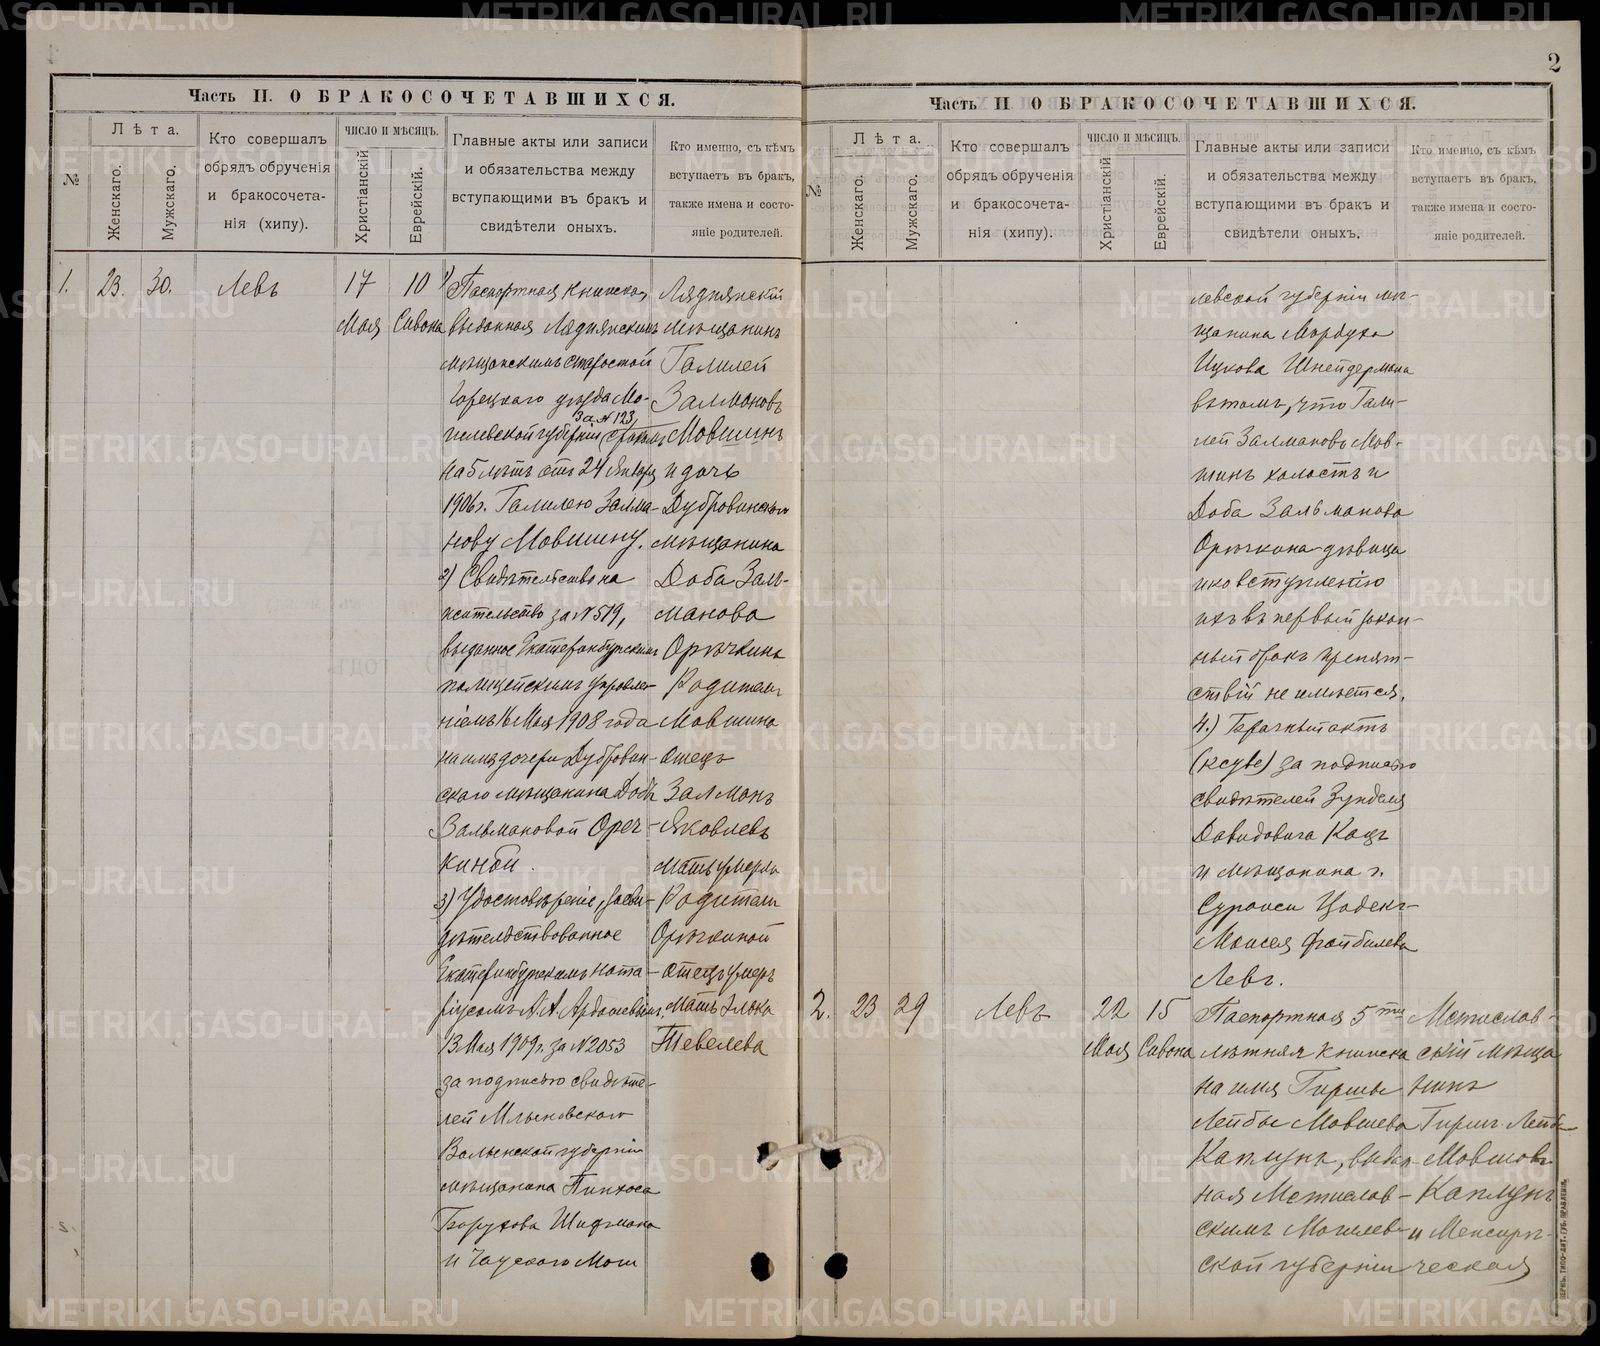 Часть II. О БРАКОСОЧЕТАВШИХСЯ.
№
Лѣта.
Женскаго.
Мужскаго.
Кто совершалъ
обрядъ обрученія
и бракосочета-
нія (хипу).
число и мѣсяцъ.
Христіанскій
Еврейскій.
Главные акты или записи
и обязательства между
вступающими въ бракъ и
свидѣтели оныхъ.
Кто именно, съ кѣмъ
вступаетъ въ бракъ,
также имена и состо-
яніе родителей.
1.
23.
30.
Левъ
17
Мая
10
Сивона
1) Паспортная книжка,
выданная Ляднянскимъ
мѣщанскимъ старостой
Горецкаго уѣзда Мо-
за №123,
гилевской губерніи срокомъ
на 5 лѣтъ отъ 24 Января
1906 г. Галилею Залма-
нову Мовшину.
2) Свидѣтельство на
жительство за №519,
выданное Екатеринбургскимъ
полицейскимъ управле-
ніемъ 16 Мая 1908 года
на имя дочери Дубровин-
скаго мѣщанина Добы
Зальмановой Ореч-
киной.
3) Удостовѣреніе, засви-
дѣтельствованное
Екатеринбургскимъ нота-
ріусомъ А. А.
13 Мая 1909 г. за №2053
за подписью свидѣте-
лей
Волынской губерніи
мѣщанина Пинхоса
Борухова Шифмана
и Чаускаго Моги
Ляднянскій
мѣщанинъ
Галилей
Залмановъ
Мовшинъ
и дочь
Дубровинскаго
мѣщанина
Доба Заль-
манова
Орѣчкина
Родители
Мовшина
отецъ
Залманъ
Яковлевъ
мать умерла
Родители
Орѣчкиной
отецъ умеръ
мать Элька
Тевелева
2
Часть II О БРАКОСОЧЕТАВШИХСЯ.
№
Лѣта.
Женскаго.
Мужскаго.
Кто совершалъ
обрядъ обрученія
и бракосочета-
нія (хипу).
число и мѣсяцъ.
Христіанскій
Еврейскій.
Главные акты или записи
и обязательства между
вступающими въ бракъ и
свидѣтели оныхъ.
Кто именно, съ кѣмъ
вступаетъ въ бракъ,
также имена и состо-
яніе родителей.
левской губерніи мѣ-
щанина Мордуха
Ицкова Шнейдермана
въ томъ, что Гали-
лей Залмановъ Мов-
шинъ холостъ и
Доба Зальманова
Орѣчкина дѣвица
и ко вступленію
ихъ въ первый закон-
ный бракъ препят-
ствій не имѣется.
4.) Брачный актъ
(ксубе) за подписью
свидѣтелей Зунделя
Давидовича Кацъ
и мѣщанина г.
Суража Цодекъ-
Моисея Файбилева
Левъ.
2.
23
29
Левъ
22
Мая
15
Сивона
Паспортная 5ти
лѣтняя книжка
на имя Гирши
Лейбы Мовшева
Каплунъ, выдан-
ная Мстислав-
скимъ Могилев-
ской губерніи
Мстислав-
скій мѣща
нинъ
Гиршъ Лейба
Мовшовъ
Каплунъ
и
ческая
ПЕРМЬ. ТИПО-ЛИТ. ГУБ. ПРАВЛЕНІЯ.
METRIKI.GASO-URAL.RU